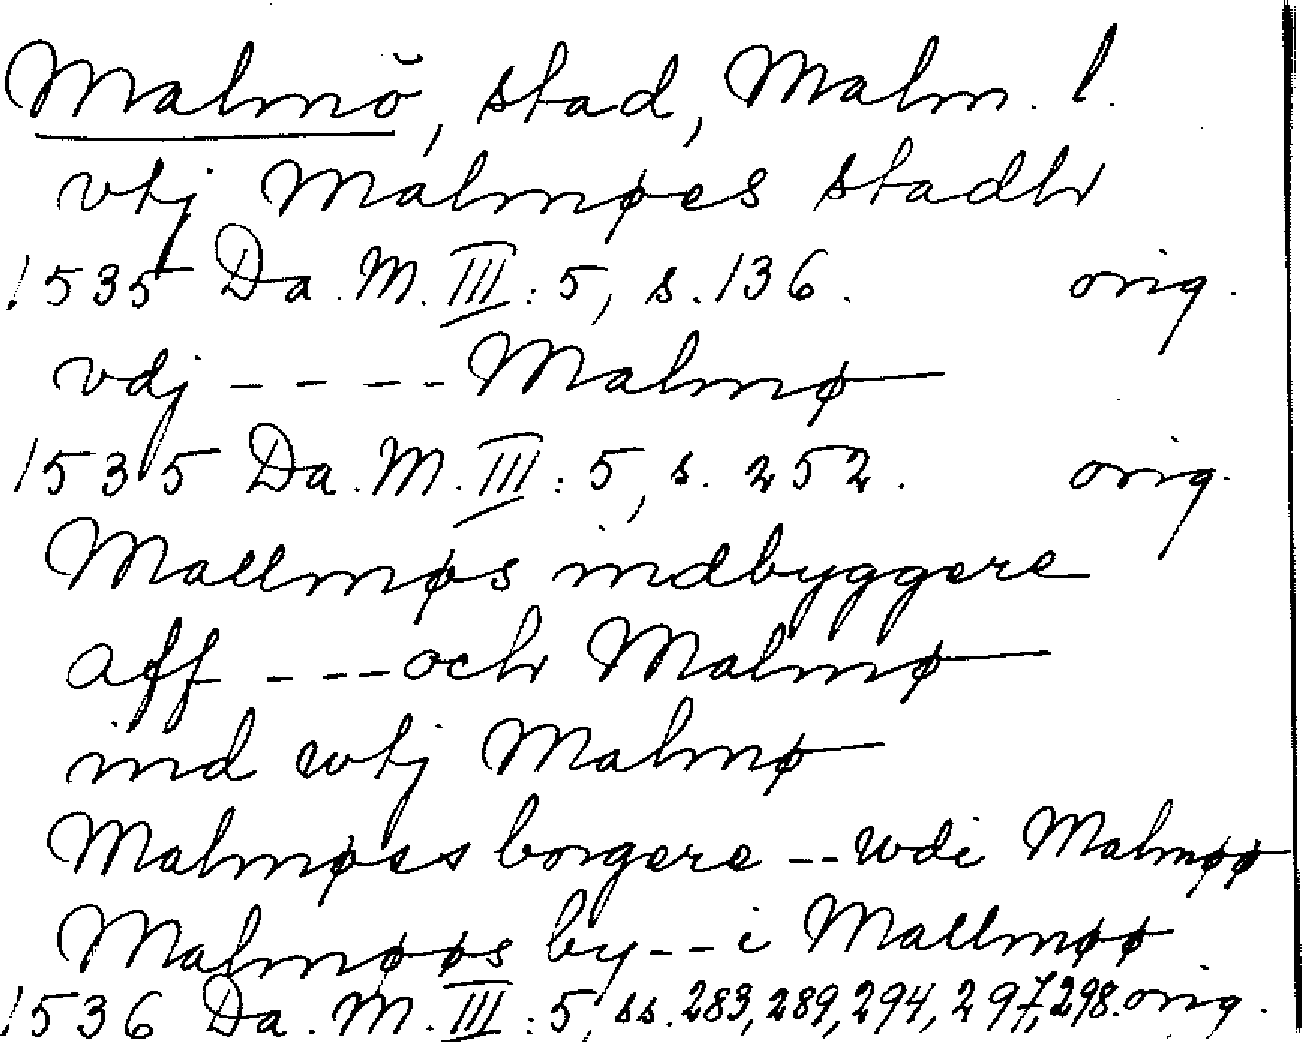 Malmö, stad, Malm. l.
vtj Malmøes stadh
1535 Da. M. III: 5, s. 136. orig.
vdj - - - - Malmø
1535 Da. M. III: 5, s. 252. orig.
Mallmøs indbyggere
aff - - - och Malmø
ind wtj Malmø
Malmøes borgere -- wdi Malmøø
Malmøøs by - - i Mallmøø
1536 Da. M. III: 5, ss. 283, 289, 294, 297, 298. orig.